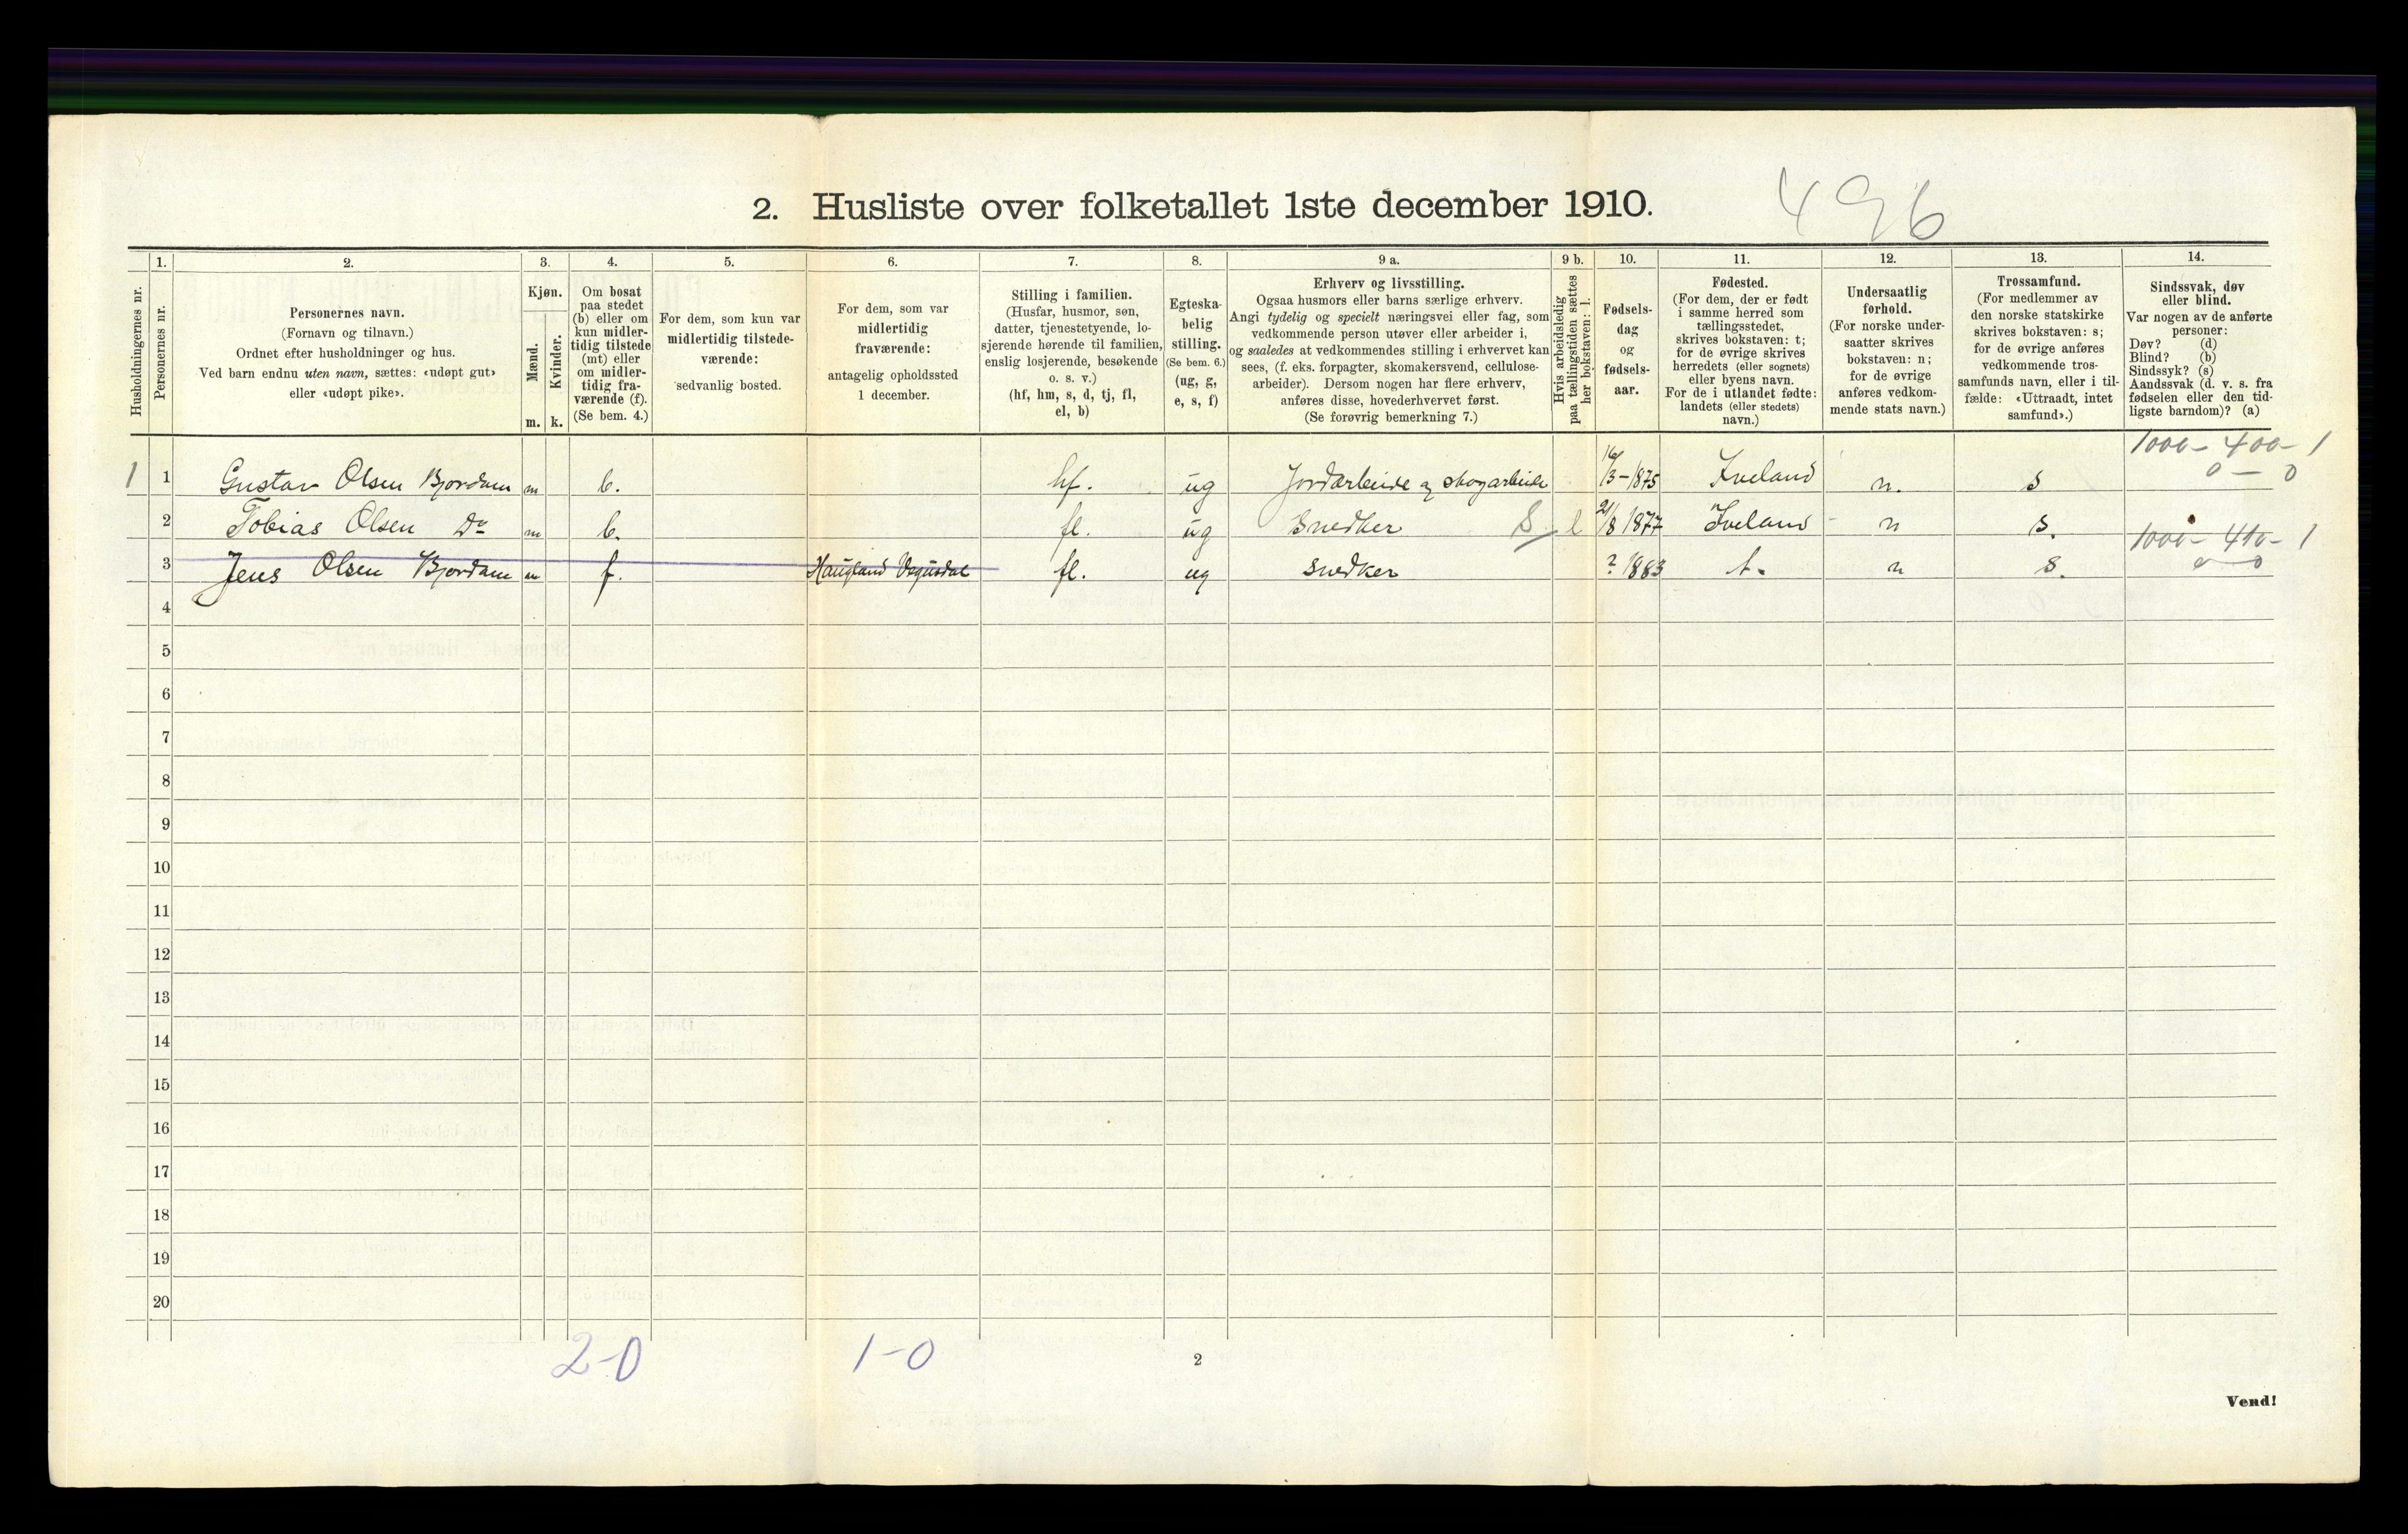 2. Husliste over folketallet 1ste december 1910.
496
Husholdningernes nr.
1.
Personernes nr.
2.
Personernes navn.
(Fornavn og tilnavn.)
Ordnet efter husholdninger og hus.
Ved barn endnu uten navn, sættes: «udøpt gut»
eller «udøpt pike».
3.
Kjøn.
Mænd.
Kvinder.
m. k.
4.
Om bosat
paa stedet
(b) eller om
kun midler-
tidig tilstede
(mt) eller
om midler-
tidig fra-
værende (f).
(Se bem. 4.)
5.
For dem, som kun var
midlertidig tilstede-
værende:
sedvanlig bosted.
6.
For dem, som var
midlertidig
fraværende:
antagelig opholdssted
1 december.
7.
Stilling i familien.
(Husfar, husmor, søn,
datter, tjenestetyende, lo-
sjerende hørende til familien,
enslig losjerende, besøkende
o. s. v.)
(hf, hm, s, d, tj, fl,
el, b)
8.
Egteska-
belig
stilling.
(Se bem. 6.)
(ug, g,
e, s, f)
9 a.
Erhverv og livsstilling.
Ogsaa husmors eller barns særlige erhverv.
Angi tydelig og specielt næringsvei eller fag, som
vedkommende person utøver eller arbeider i,
og saaledes at vedkommendes stilling i erhvervet kan
sees, (f. eks. forpagter, skomakersvend, cellulose-
arbeider). Dersom nogen har flere erhverv,
anføres disse, hovederhvervet først.
(Se forøvrig bemerkning 7.)
9 b.
Hvis arbeidsledig
paa tællingstiden sættes
her bokstaven: l.
10.
Fødsels-
dag
og
fødsels-
aar.
11.
Fødested.
(For dem, der er født
i samme herred som
tællingsstedet,
skrives bokstaven: t;
for de øvrige skrives
herredets (eller sognets)
eller byens navn.
For de i utlandet fødte:
landets (eller stedets)
navn.)
12.
Undersaatlig
forhold.
(For norske under-
saatter skrives
bokstaven: n;
for de øvrige
anføres vedkom-
mende stats navn.)
13.
Trossamfund.
(For medlemmer av
den norske statskirke
skrives bokstaven: s;
for de øvrige anføres
vedkommende tros-
samfunds navn, eller i til-
fælde: «Uttraadt, intet
samfund».)
14.
Sindssvak, døv
eller blind.
Var nogen av de anførte
personer:
Døv? (d)
Blind? (b)
Sindssyk? (s)
Aandssvak (d. v. s. fra
fødselen eller den tid-
ligste barndom)? (a)
1000 - 400 - 1
0 - 0
1 1 Gustav Olsen Bjordam m b. hf. ug Jordarbeide og skogarbeide 16/3-1875 Iveland n. s
2 Tobias Olsen Do m b. fl. ug Snedker S l 21/8 1877 Iveland n s.
1000 - 410 - 1
0 - 0
3 Jens Olsen Bjordam m f. Haugland Vegusdal fl. ug Snedker ? 1883 t. n s.
4
5
6
7
8
9
10
11
12
13
14
15
16
17
18
19
20
2-0 1-0
2
Vend!